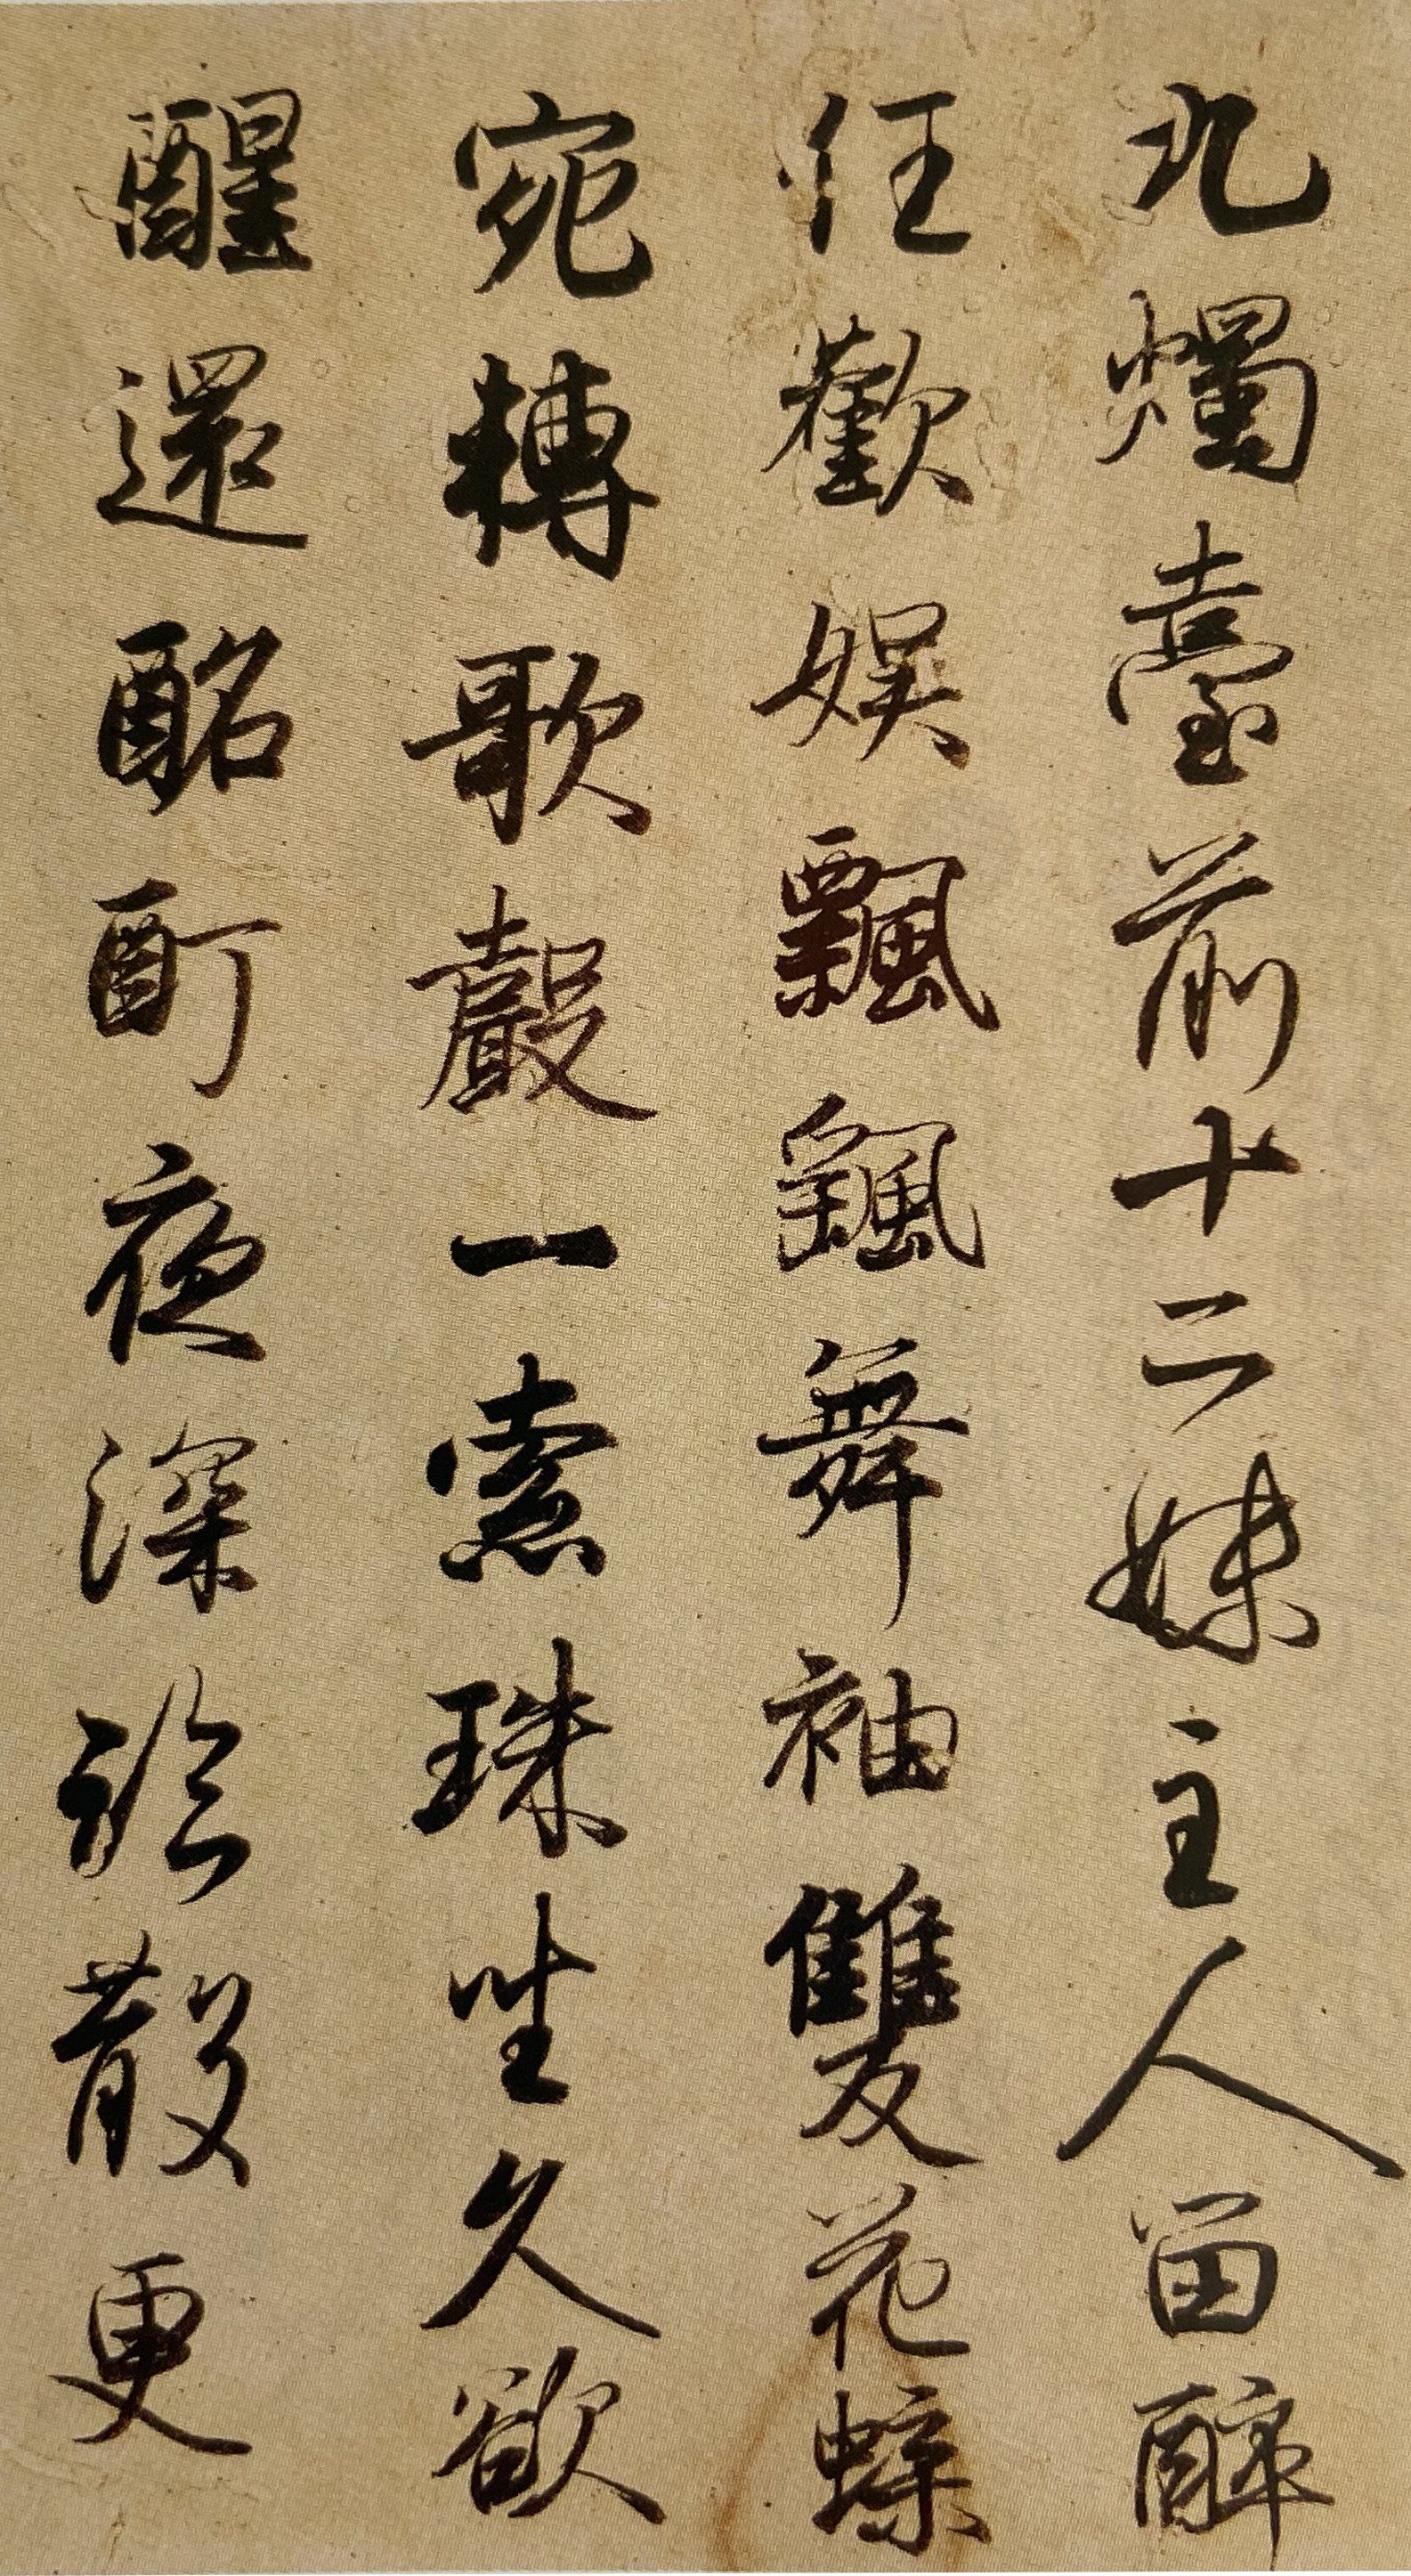 九燭臺前十二姝主人留醉
任歡娛飄颻舞袖雙花蝶
宛轉歌聲一索珠坐久欲
醒還酩酊夜深臨散更